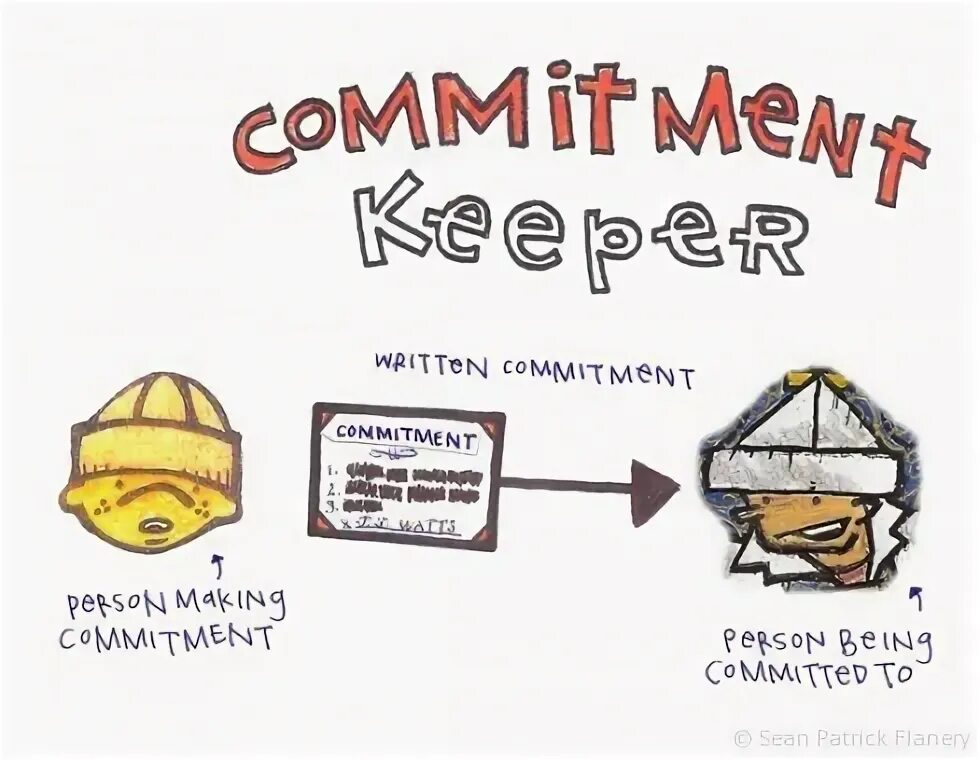 COMMITMENT
KEEPER
WRITTEN COMMITMENT
COMMITMENT
1.
2.
3.
X J.J. WATTS
PERSON MAKING
COMMITMENT
PERSON BEING
COMMITTED TO
© Sean Patrick Flanery